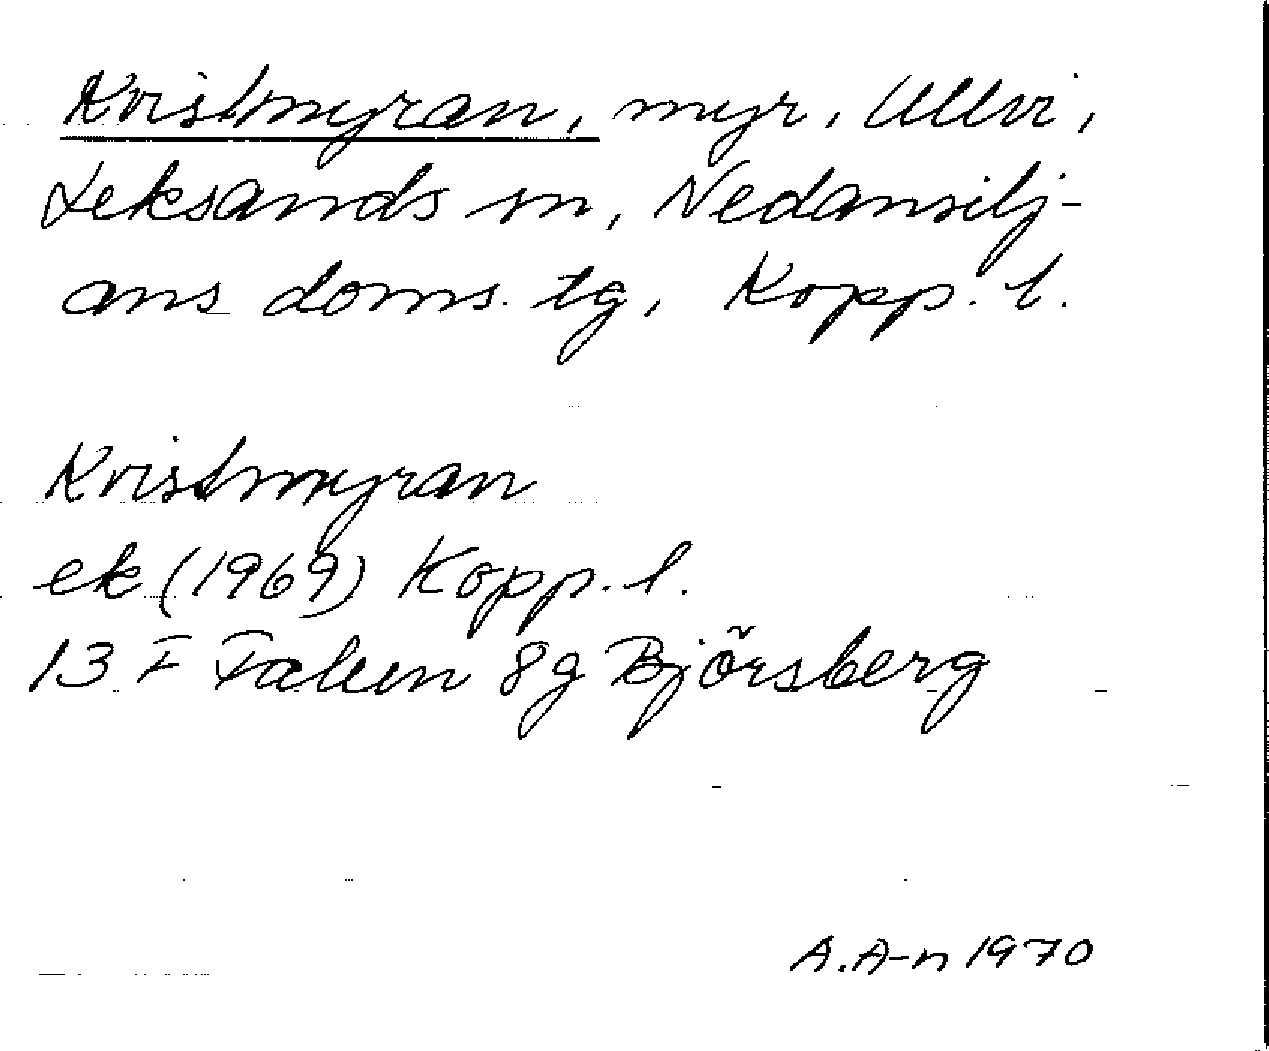 Kvistmyran, myr, Ullvi,
Leksands sn, Nedansilj-
ans doms. tg, Kopp. l.
Kvistmyran
ek (1969) Kopp. l.
13 F Falun 8g Björsberg
A. A-n 1970